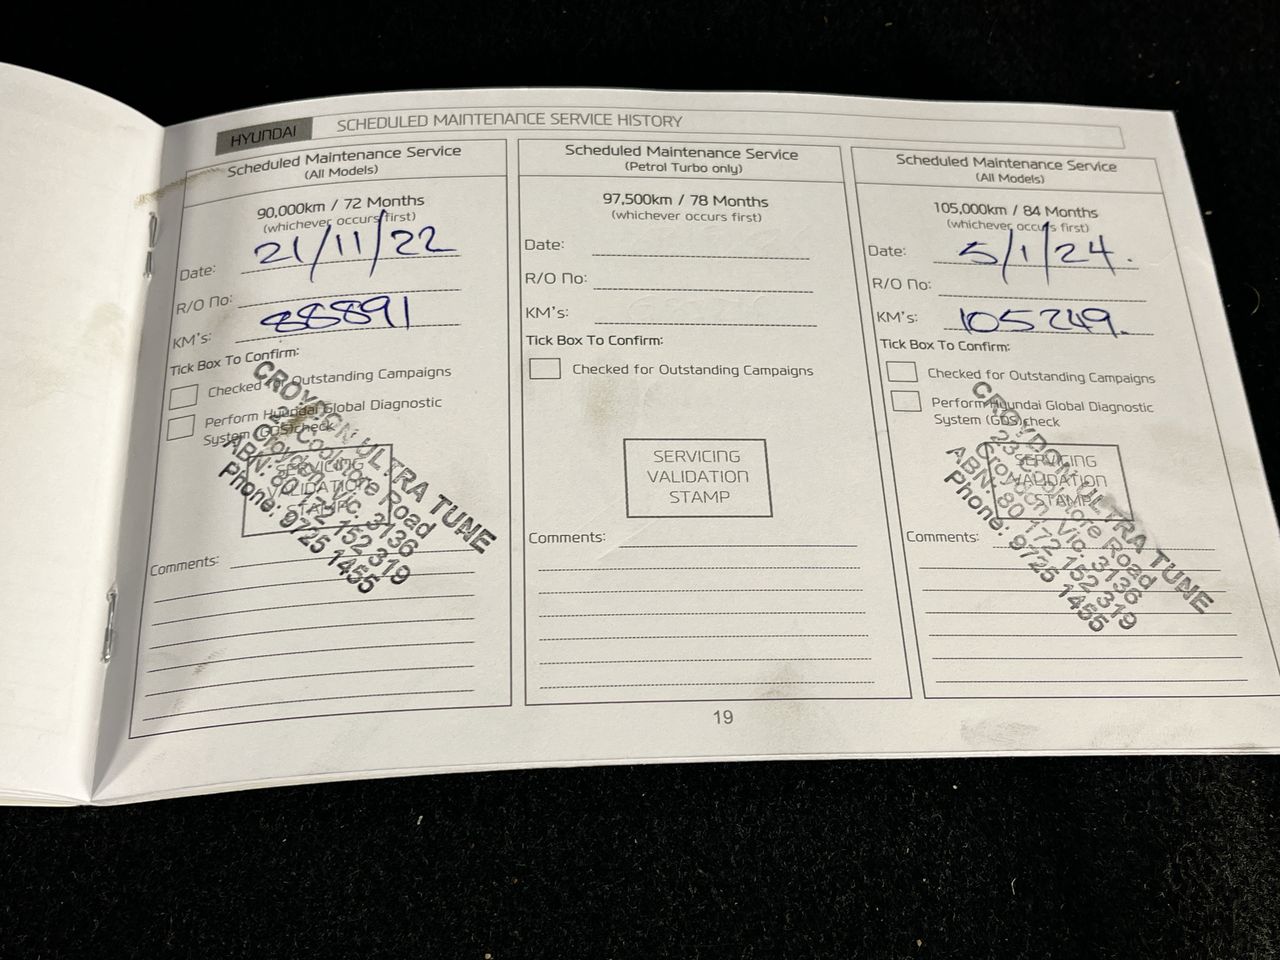 HYUNDAI SCHEDULED MAINTENANCE SERVICE HISTORY
Scheduled Maintenance Service
(All Models)
90,000km / 72 Months
(whichever occurs first)
Date: 21/11/22
R/O No:
KM's: 88891
Tick Box To Confirm:
Checked for Outstanding Campaigns
Perform Hyundai Global Diagnostic
System (GDS)check
SERVICING
VALIDATION
STAMP
CROYDON ULTRA TUNE
Road
Croydon Vic. 3136
ABN: 80 172 152 319
Phone: 9725 1455
Comments:
Scheduled Maintenance Service
(Petrol Turbo only)
97,500km / 78 Months
(whichever occurs first)
Date:
R/O No:
KM's:
Tick Box To Confirm:
Checked for Outstanding Campaigns
SERVICING
VALIDATION
STAMP
Comments:
Scheduled Maintenance Service
(All Models)
105,000km / 84 Months
(whichever occurs first)
Date: 5/1/24.
R/O No:
KM's: 105249.
Tick Box To Confirm:
Checked for Outstanding Campaigns
Perform Hyundai Global Diagnostic
System (GDS)check
SERVICING
VALIDATION
STAMP
CROYDON ULTRA TUNE
Road
Croydon Vic. 3136
ABN: 80 172 152 319
Phone: 9725 1455
Comments:
19